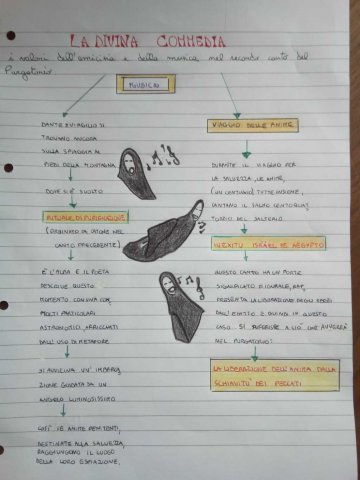 LA DIVINA COMMEDIA
i valori dell'amicizia e della musica nel secondo canto del
Purgatorio
MUSICA
DANTE E VIRGILIO SI
TROVANO ANCORA
SULLA SPIAGGIA AI
PIEDI DELLA MONTAGNA
DOVE SI È SVOLTO
RITUALE DI PURIFICAZIONE
(ORDINATO DA CATONE NEL
CANTO PRECEDENTE)
È L'ALBA E IL POETA
DESCRIVE QUESTO
MOMENTO CON UNA
MOLTI PARTICOLARI
ASTRONOMICI, ARRICCHITI
DALL'USO DI METAFORE
SI AVVICINA UN' IMBARCA
ZIONE GUIDATA DA UN
ANGELO LUMINOSISSIMO
COSÌ LE ANIME PENITENTI,
DESTINATE ALLA SALVEZZA,
RAGGIUNGONO IL LUOGO
DELLA LORO ESPIAZIONE,
VIAGGIO DELLE ANIME
DURANTE IL VIAGGIO PER
LA SALVEZZA, LE ANIME,
(UN CENTINAIO) TUTTE INSIEME,
CANTANO IL SALMO
DEL SALTERIO
IN EXITU ISRAEL DE AEGYPTO
QUESTO CANTO HA UN FORTE
SIGNIFICATO FIGURALE, RAP
PRESENTA LA LIBERAZIONE DEGLI EBREI
DALL'EGITTO E QUINDI IN QUESTO
CASO SI RIFERISCE A CIÒ CHE AVVERRÀ
NEL PURGATORIO:
LA LIBERAZIONE DELL'ANIMA DALLA
SCHIAVITÙ DEI PECCATI
?